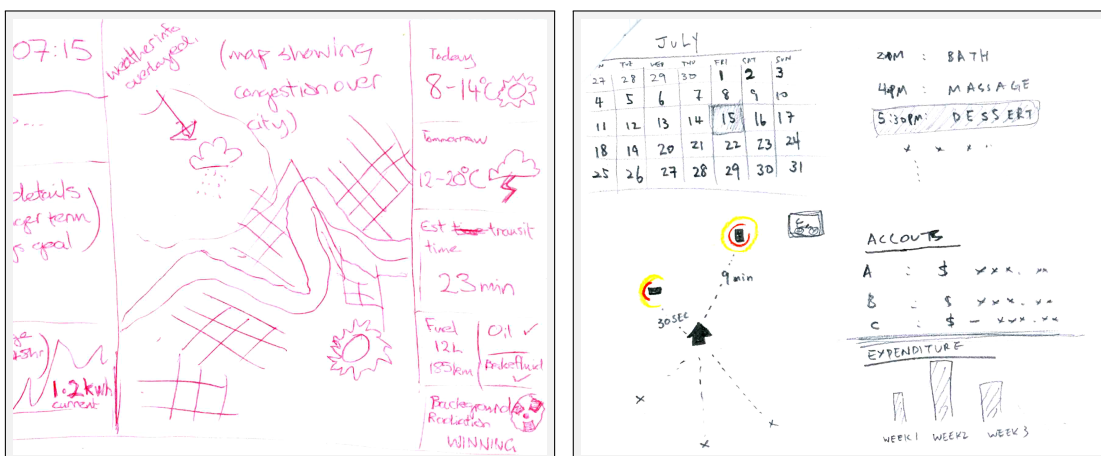 07:15
details
term
goal)
1.2 kWh
current
weather info
overlayed.
(map showing
congestion over
city)
Today
8-14°C
Tomorrow
12-20°C
Est transit
time
23 min
Fuel
12L
185km
Oil ✓
Background
Radiation
WINNING
JULY
M TUE WED THU FRI SAT SUN
27 28 29 30 1 2 3
4 5 6 7 8 9 10
11 12 13 14 15 16 17
18 19 20 21 22 23 24
25 26 27 28 29 30 31
30 SEC
9 min
2PM : BATH
4PM : MASSAGE
5:30PM: DESSERT
x x x ..
ACCOUTS
A : $ xxx. xx
B : $ xxx. xx
C : $ - xxx.xx
EXPENDITURE
WEEK 1 WEEK 2 WEEK 3